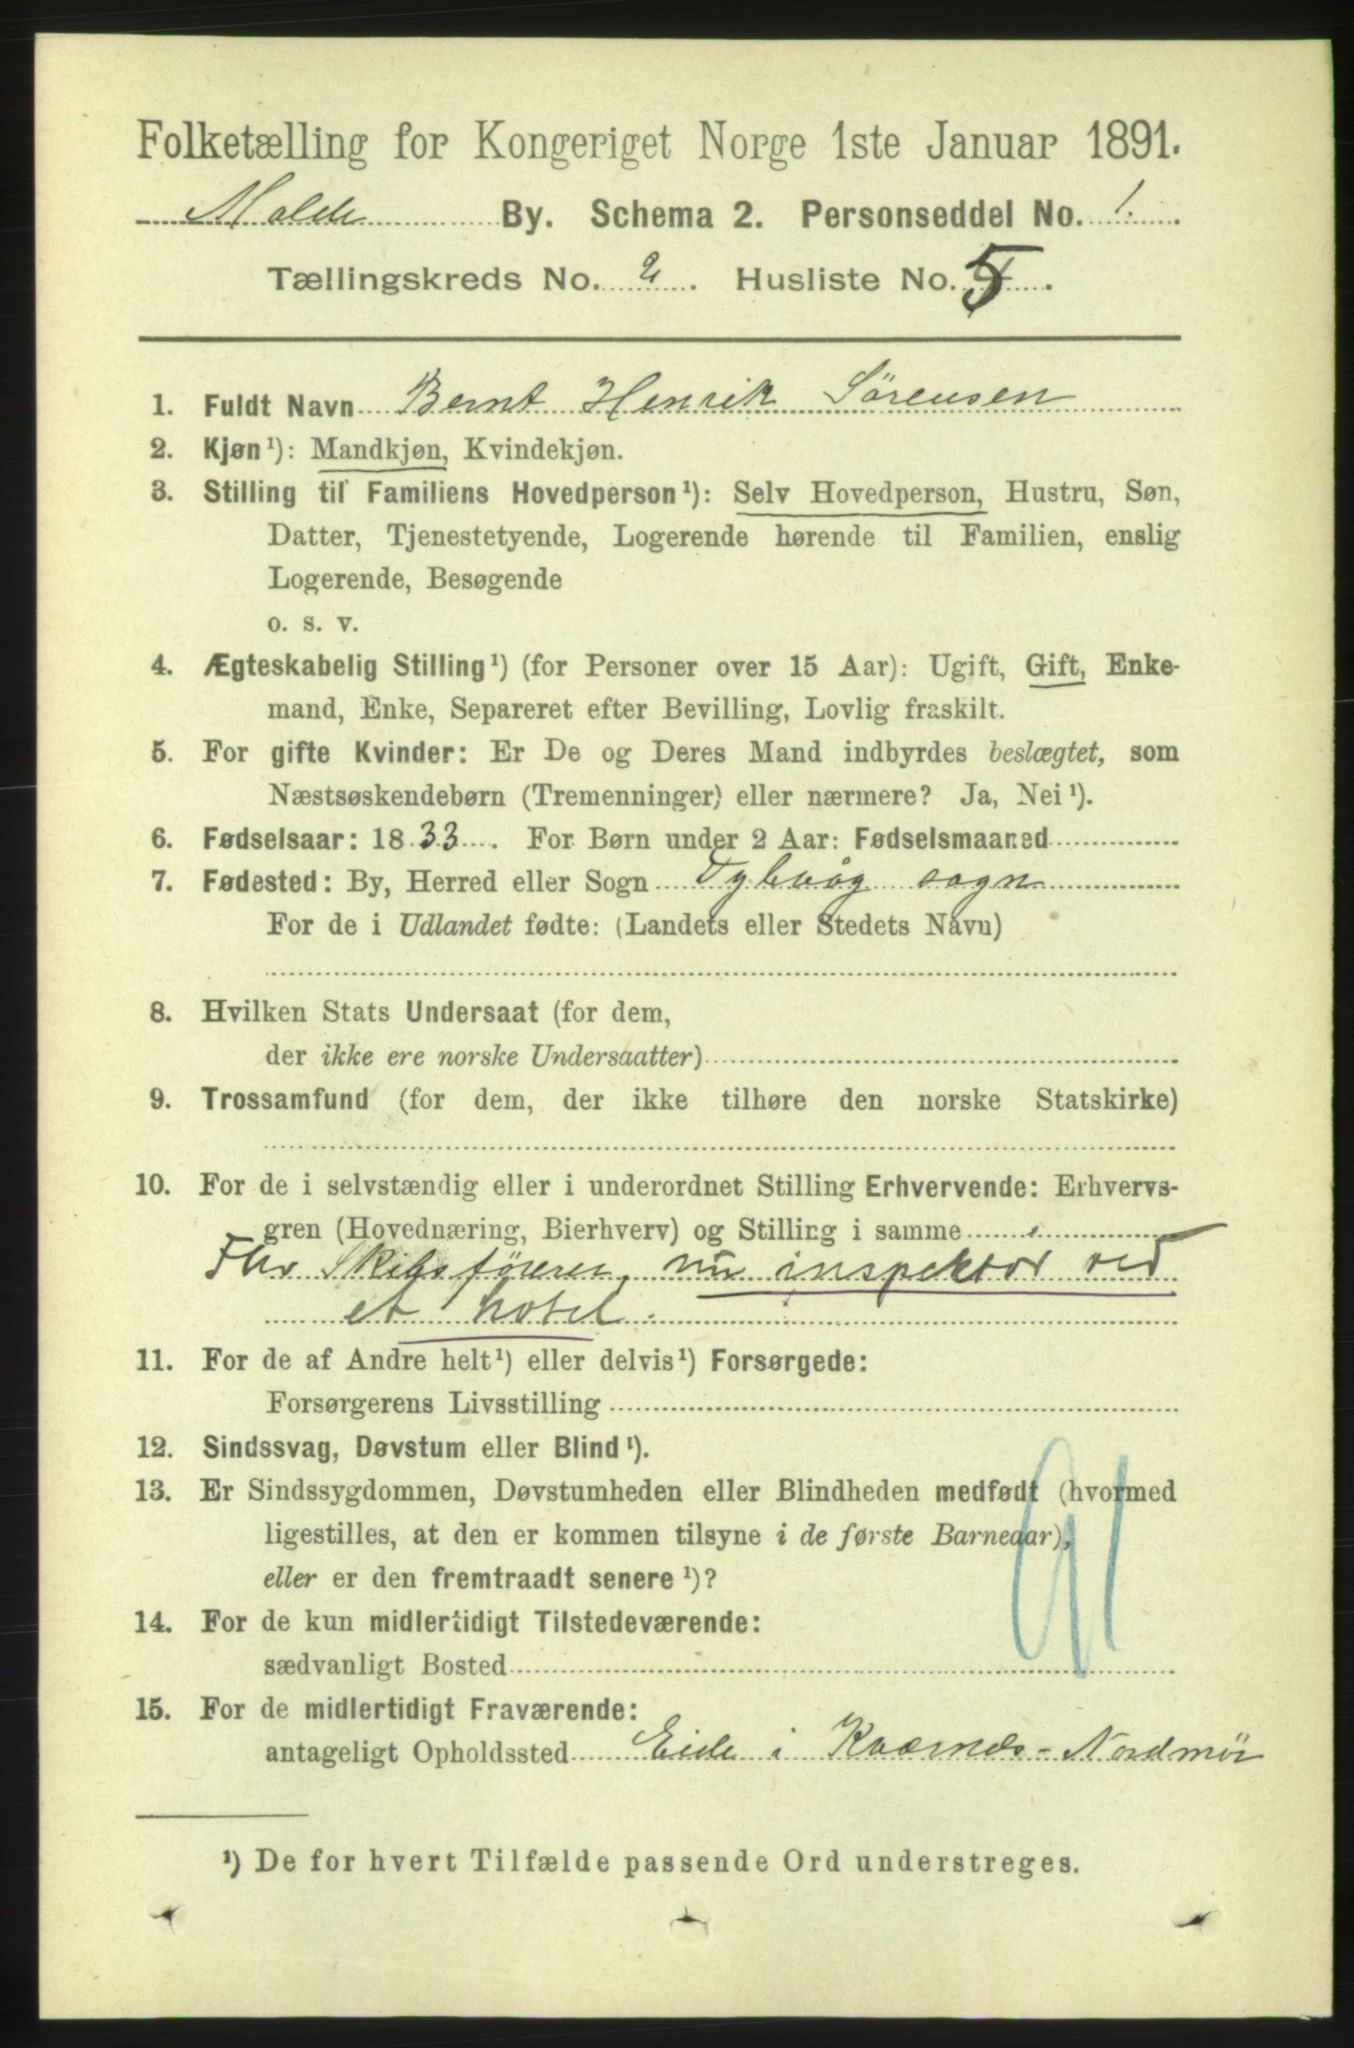 Folketælling for Kongeriget Norge 1ste Januar 1891.
Molde By. Schema 2. Personseddel No. 1.
Tællingskreds No. 2. Husliste No. 5.
1. Fuldt Navn Bernt Henrik Sörensen
2. Kjøn¹): Mandkjøn, Kvindekjøn.
3. Stilling til Familiens Hovedperson¹): Selv Hovedperson, Hustru, Søn,
Datter, Tjenestetyende, Logerende hørende til Familien, enslig
Logerende, Besøgende
o. s. v.
4. Ægteskabelig Stilling¹) (for Personer over 15 Aar): Ugift, Gift, Enke-
mand, Enke, Separeret efter Bevilling, Lovlig fraskilt.
5. For gifte Kvinder: Er De og Deres Mand indbyrdes beslægtet, som
Næstsøskendebørn (Tremenninger) eller nærmere? Ja, Nei¹).
6. Fødselsaar: 1833. For Børn under 2 Aar: Fødselsmaaned
7. Fødested: By, Herred eller Sogn sogn
For de i Udlandet fødte: (Landets eller Stedets Navn)
8. Hvilken Stats Undersaat (for dem,
der ikke ere norske Undersaatter)
9. Trossamfund (for dem, der ikke tilhøre den norske Statskirke)
10. For de i selvstændig eller i underordnet Stilling Erhvervende: Erhvervs-
gren (Hovednæring, Bierhverv) og Stilling i samme
Skibsförerer, nu inspektör ved
et hotel.
11. For de af Andre helt¹) eller delvis¹) Forsørgede:
Forsørgerens Livsstilling
12. Sindssvag, Døvstum eller Blind¹).
13. Er Sindssygdommen, Døvstumheden eller Blindheden medfødt (hvormed
ligestilles, at den er kommen tilsyne i de første Barneaar),
eller er den fremtraadt senere¹)?
91
14. For de kun midlertidigt Tilstedeværende:
sædvanligt Bosted
15. For de midlertidigt Fraværende:
antageligt Opholdssted Eide i Kværnes - Nordmör
¹) De for hvert Tilfælde passende Ord understreges.